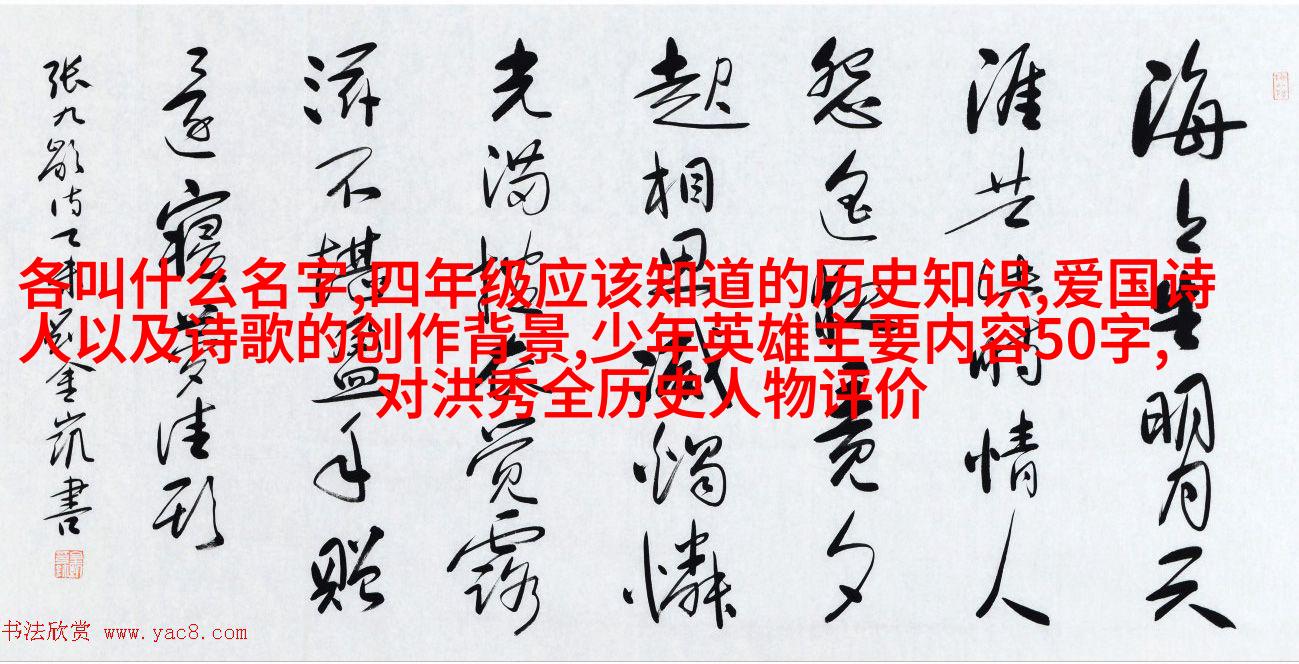 各叫什么名字,四年级应该知道的历史知识,爱国诗
人以及诗歌的创作背景,少年英雄主要内容50字,
对洪秀全历史人物评价
海上生明月天
涯共此時情人
怨遥夜竟夕
起相思滅燭憐
光滿披衣覺露
滋不堪盈手贈
還寢夢佳期
張九齡詩乙未金書
书法欣赏 www.yac8.com